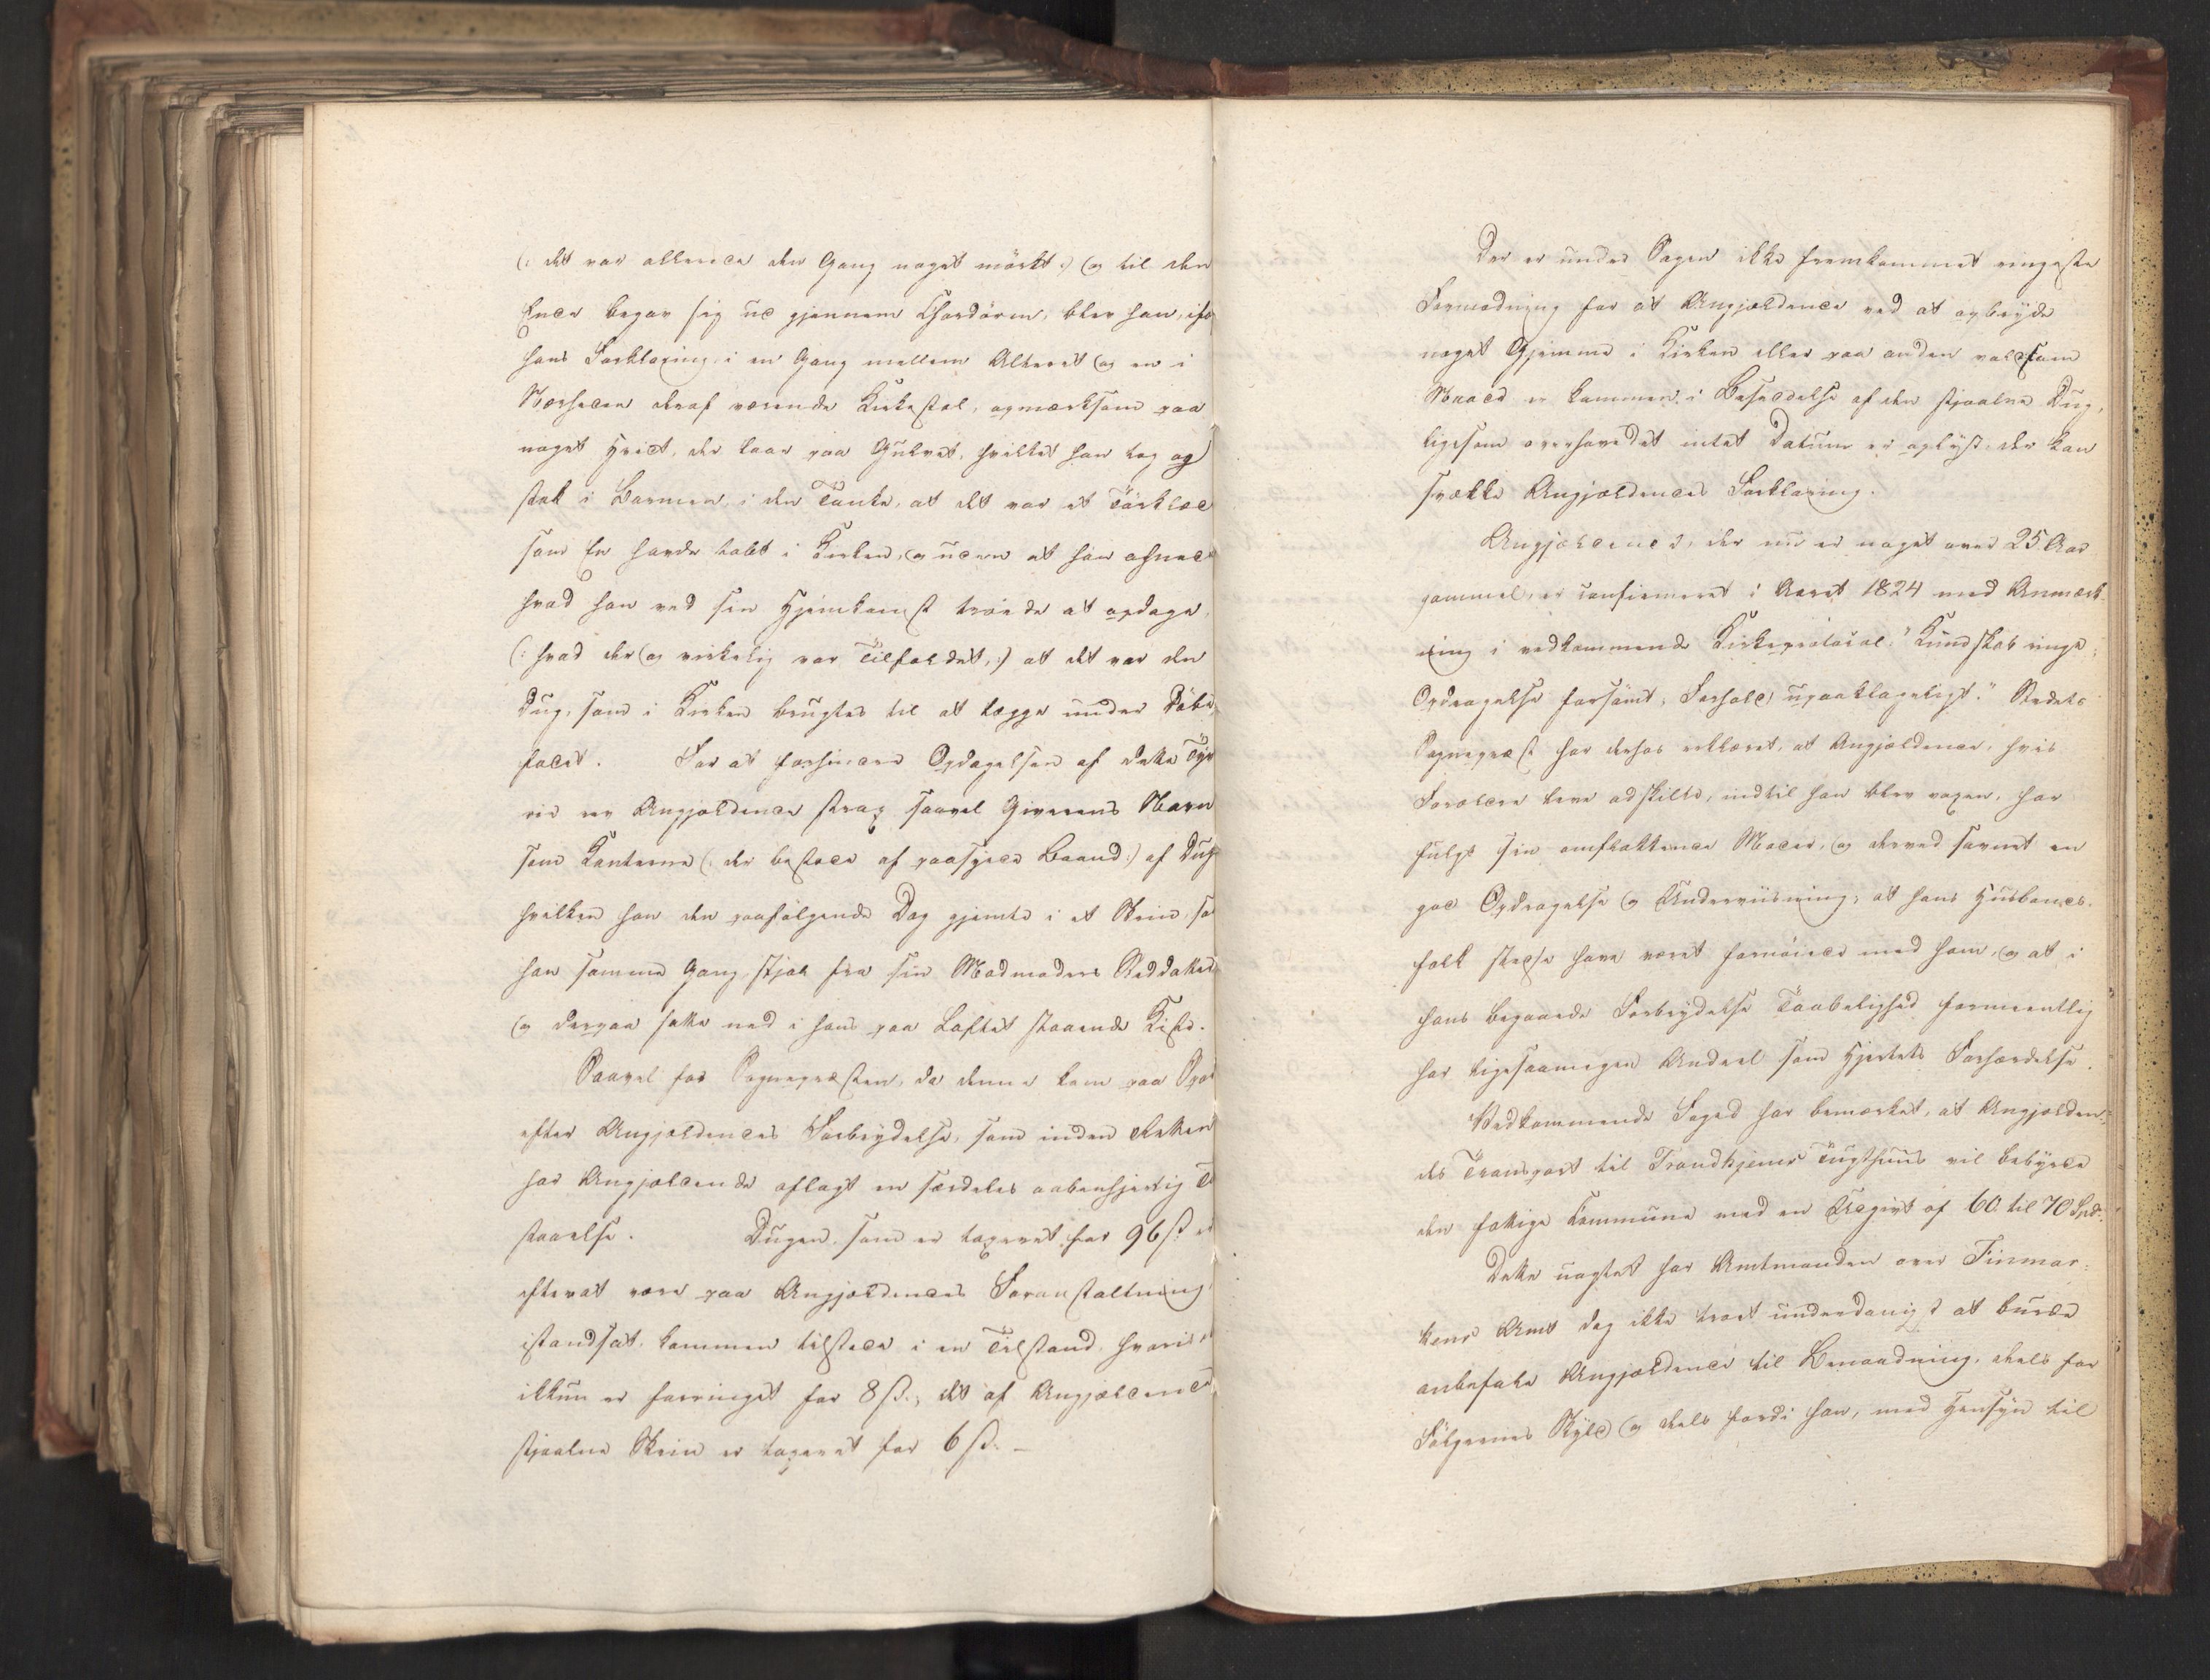 (: det var allerede den Gang noget mörkt :) og til den
Ende begav sig ud gjennem Chordören, blev han, ifø
hans Forklaring, i en Gang mellem Alteret og en i
Nærheden deraf værende Kirkestol, opmærksom paa
noget Hvidt, der laae paa Gulvet, hvilket han tog og
stak i Barmen, i den Tanke, at det var et Törklæde
som En havde tabt i Kirken, og uden at han ahnede
hvad han ved sin Hjemkomst troede at opdage,
(: hvad der og virkelig var Tilfældet, :) at det var den
Dug, som i Kirken brugtes til at lægge under Döbe
fadet. For at forhindre Opdagelsen af dette Tyv
rie rev Angjældende strax saavel Giverens Navn
som Kanterne (: der bestode af paasyede Baand :) af Dug
hvilken han den paafölgende Dag gjemte i et Skrin, so
han samme Gang stjal fra sin Madmoders Reddaker
og derpaa satte ned i hans paa Loftet staaende Kiste.
Saavel for Sognepræsten, da denne kom paa Spor
efter Angjældendes Forbrydelse, som inden Retten
har Angjældende aflagt en særdeles aabenhjertig T
staaelse. Dugen, som er taxeret for 96 ß er
efterat være paa Angjældendes Foranstaltning
istandsat, kommen tilstede i en Tilstand, hvori
ikkun er forringet for 8 ß.; det af Angjældende
stjaalne Skrin er taxeret for 6 ß. –
Der er under Sagen ikke fremkommet ringeste
Formodning for at Angjældende ved at opbryde
noget Gjemme i Kirken eller paa anden voldsom
Maade er kommen i Besiddelse af den stjaalne Dug,
ligesom overhovedet intet Datum er oplyst, der kan
svække Angjældendes Forklaring.
Angjældende, der nu er noget over 25 Aar
gammel, er confirmeret i Aaret 1824 med Anmærk-
ning i vedkommende Kirkeprotocol: "Kundskab ringe;
Opdragelse forsömt; Forhold upaaklageligt." Stedets
Sognepræst har derhos erklæret, at Angjældende, hvis
Forældre leve adskilte, indtil han blev voxen, har
fulgt sin omflakkende Moder, og derved savnet en
god Opdragelse og Underviisning; at hans Husbonds-
folk stedse have været fornöiede med ham, og at i
hans begaaede Forbrydelse Taabelighed formeentlig
har ligesaamegen Andeel som Hjertets Forhærdelse.
Vedkommende Foged har bemærket, at Angjælden-
des Transport til Trondhjems Tugthuus vil bebyrde
den fattige Commune med en Udgivt af 60 til 70 Spd.
Dette uagtet har Amtmanden over Finmar-
kens Amt dog ikke troet underdanigst at burde
anbefale Angjældende til Benaadning, deels for
Fölgernes Skyld og deels fordi han, med Hensyn til